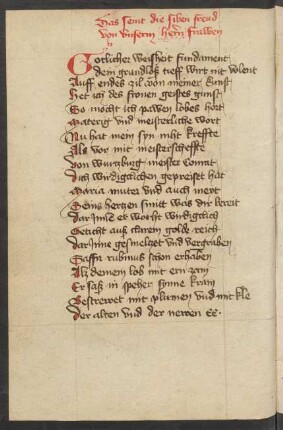 Das seint die siben freud
von vnserm herr frawen
Gotlicher weisheit fundament
dein grundloß tieff wirt nit volent
Auff endes zil von meiner kunst
Het ich des fronen geistes gunst
So möcht ich pawen lobes hort
Materig vnd meisterliche wort
Nu hat mein syn niht kreffte
Als vor mit meisterscheffte
von wurtzburg meister Conrat
Dich wirdigclichen gepreiset hat
Maria muter vnd auch mert
Seins hertzen smitt was dir bereit
dar Inne er worst wirdigclich
Geticht auß clarem golde reich
dar Inne gesmeltzet vnd vergraben
Saffir rubinus schon erhaben
Als deinem lob mit ern zam
Er saß in speher synne kram
Gestrewet mit plumen vnd mit kle
der alten vnd der newen ee